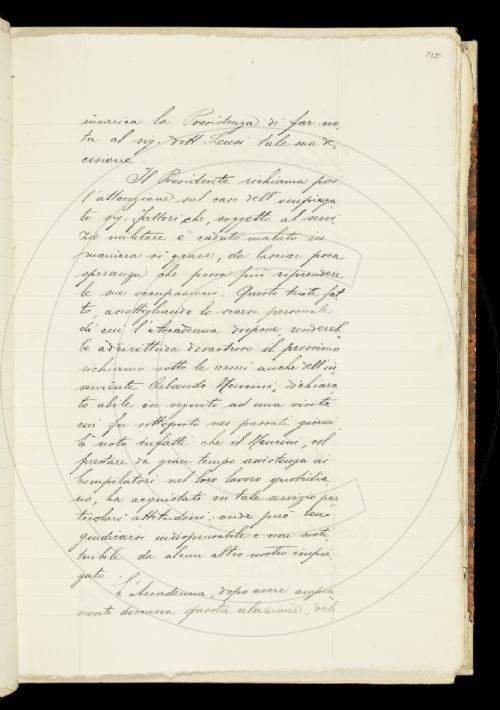 incarica la Presidenza di far no-
ta al sig. Dott. Lensi tale sua de-
cisione.
Il Presidente richiama poi
l'attenzione sul caso dell'impiega-
to sig. Fattori che, soggetto al servi-
zio militare è caduto malato in
maniera sì grave, da lasciar poca
speranza che possa più riprendere
le sue occupazioni. Questo triste fat-
to, assottigliando lo scarso personale
di cui l'Accademia dispone, rendereb-
be addirittura disastroso il prossimo
richiamo sotto le armi anche dell'in-
serviente Orlando Mencini, dichiara-
to abile in seguito ad una visita
cui fu sottoposto nei passati giorni.
È noto infatti che il Mencini, col
prestare da gran tempo assistenza ai
Compilatori nel loro lavoro quotidia-
no, ha acquistato in tale servizio par-
ticolari attitudini: onde può ben
giudicarsi indispensabile e non sosti-
tuibile da alcun altro nostro impie-
gato.
L'Accademia, dopo avere ampia-
mente discussa questa relazione, deli-